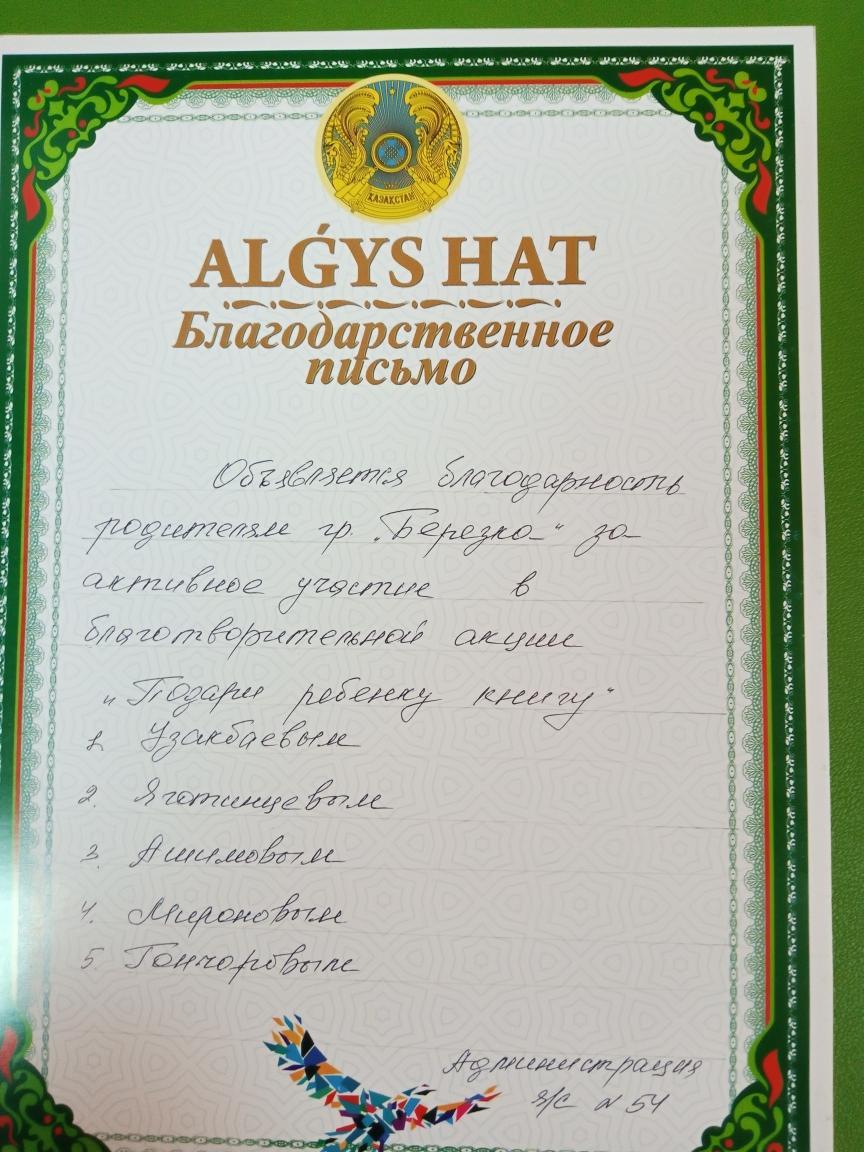 ҚАЗАҚСТАН
ALǴYS HAT
Благодарственное
письмо
Объявляется благодарность
родителям гр. „Березка“ за
активное участие в
благотворительной акции
„Подари ребенку книгу“
1. Узакбаевым
2. Яготинцевым
3. Ашимовым
4. Мироновым
5. Гончаровым
Администрация
я/с №54